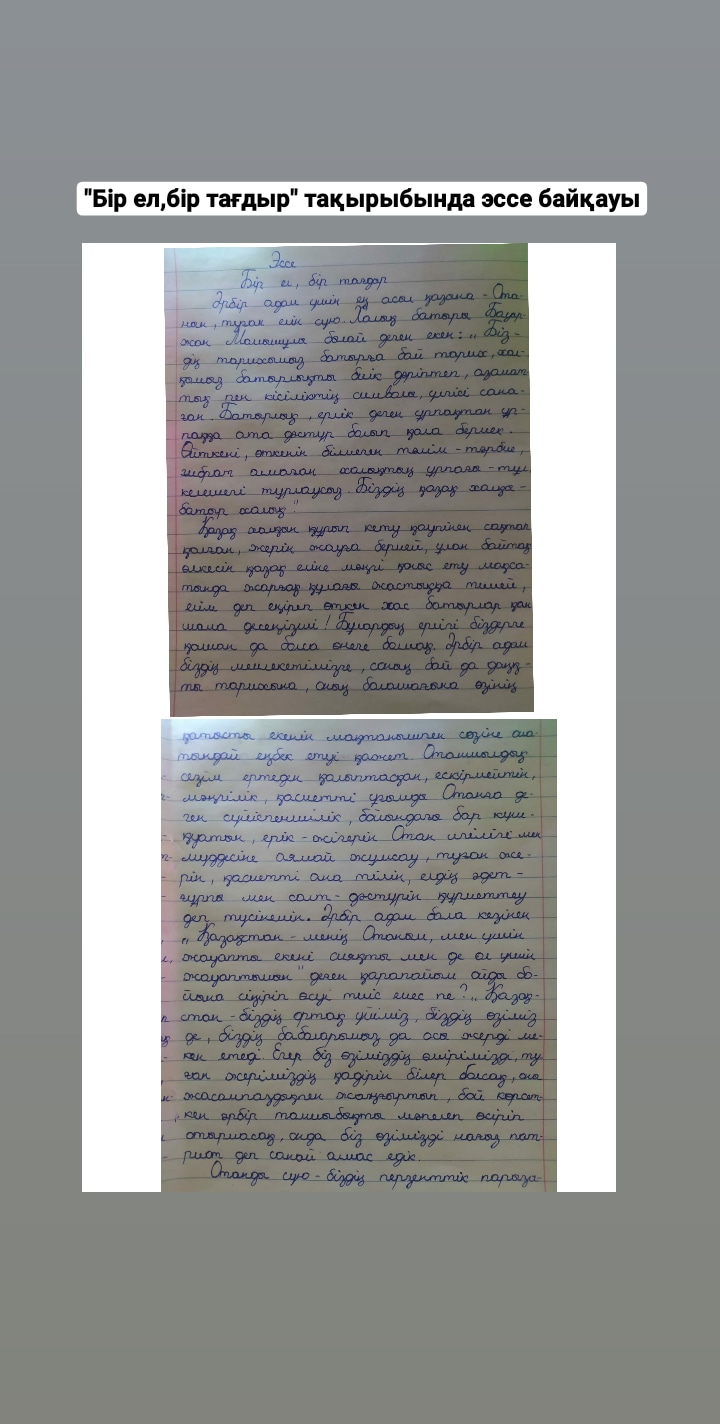 "Бір ел,бір тағдыр" тақырыбында эссе байқауы
Эссе
Бір ел, бір тағдыр
Әрбір адам үшін ең асыл қазына - Ота-
нын, туған елін сүю. Халық батыры Бауыр-
жан Момышұлы былай деген екен: „Біз-
дің тарихымыз батырға бай тарих, хал-
қымыз батырлықты биік дәріптеп, азамат-
тық пен кісіліктің символы, үлгісі сана-
ған. Батырлық, ерлік деген ұрпақтан ұр-
паққа ата дәстүр болып қала бермек.
Өйткені, өткенін білмеген тәлім - тәрбие,
ғибрат алмаған халықтың ұрпағы - тұл,
келешегі тұрлаусыз. Біздің қазақ халқы -
батыр халық"
Қазақ халқын құрып кету қаупінен сақтап
қалған, жерін жауға бермей, ұлан байтақ
өлкесін қазақ еліне мәңгі қоныс ету мақса-
тында жарғақ құлағы жастыққа тимей,
елім деп еңіреп өткен жас батырлар қан
шама десеңізші! Бұлардың ерлігі біздерге
қашан да болса өнеге болмақ. Әрбір адам
біздің мемлекетімізге, соның бай да даңқ-
ты тарихына, оның болашағына өзінің
қатысты екенін мақтанышпен сезіне ала-
тындай еңбек етуі қажет. Отаншылдық
сезім ертеден қалыптасқан, ескірмейтін,
мәңгілік, қасиетті ұғымды Отанға де-
ген сүйіспеншілік, бойындағы бар күш-
қуатын, ерік - жігерін Отан игілігі мен
мүддесіне аямай жұмсау, туған же-
рін, қасиетті ана тілін, елдің әдет -
ғұрпы мен салт - дәстүрін құрметтеу
деп түсінемін. Әрбір адам бала кезінен
„Қазақстан - менің Отаным, мен үшін
жауапты екені сияқты мен де ол үшін
жауаптымын" деген қарапайым ойды бо-
йына сіңіріп өсуі тиіс емес пе? „Қазақ-
стан - біздің ортақ үйіміз, біздің өзіміз
де, біздің бабаларымыз да осы жерді ме-
кен етеді. Егер біз өзіміздің өмірімізді, ту-
ған жеріміздің қадірін білер болсақ, оны
жасампаздықпен жаңғыртып, бой көрсет-
кен әрбір талшыбықты мәпелеп өсіріп
отырмасақ, онда біз өзімізді нағыз пат-
риот деп санай алмас едік.
Отанды сүю - біздің перзенттік парызы-